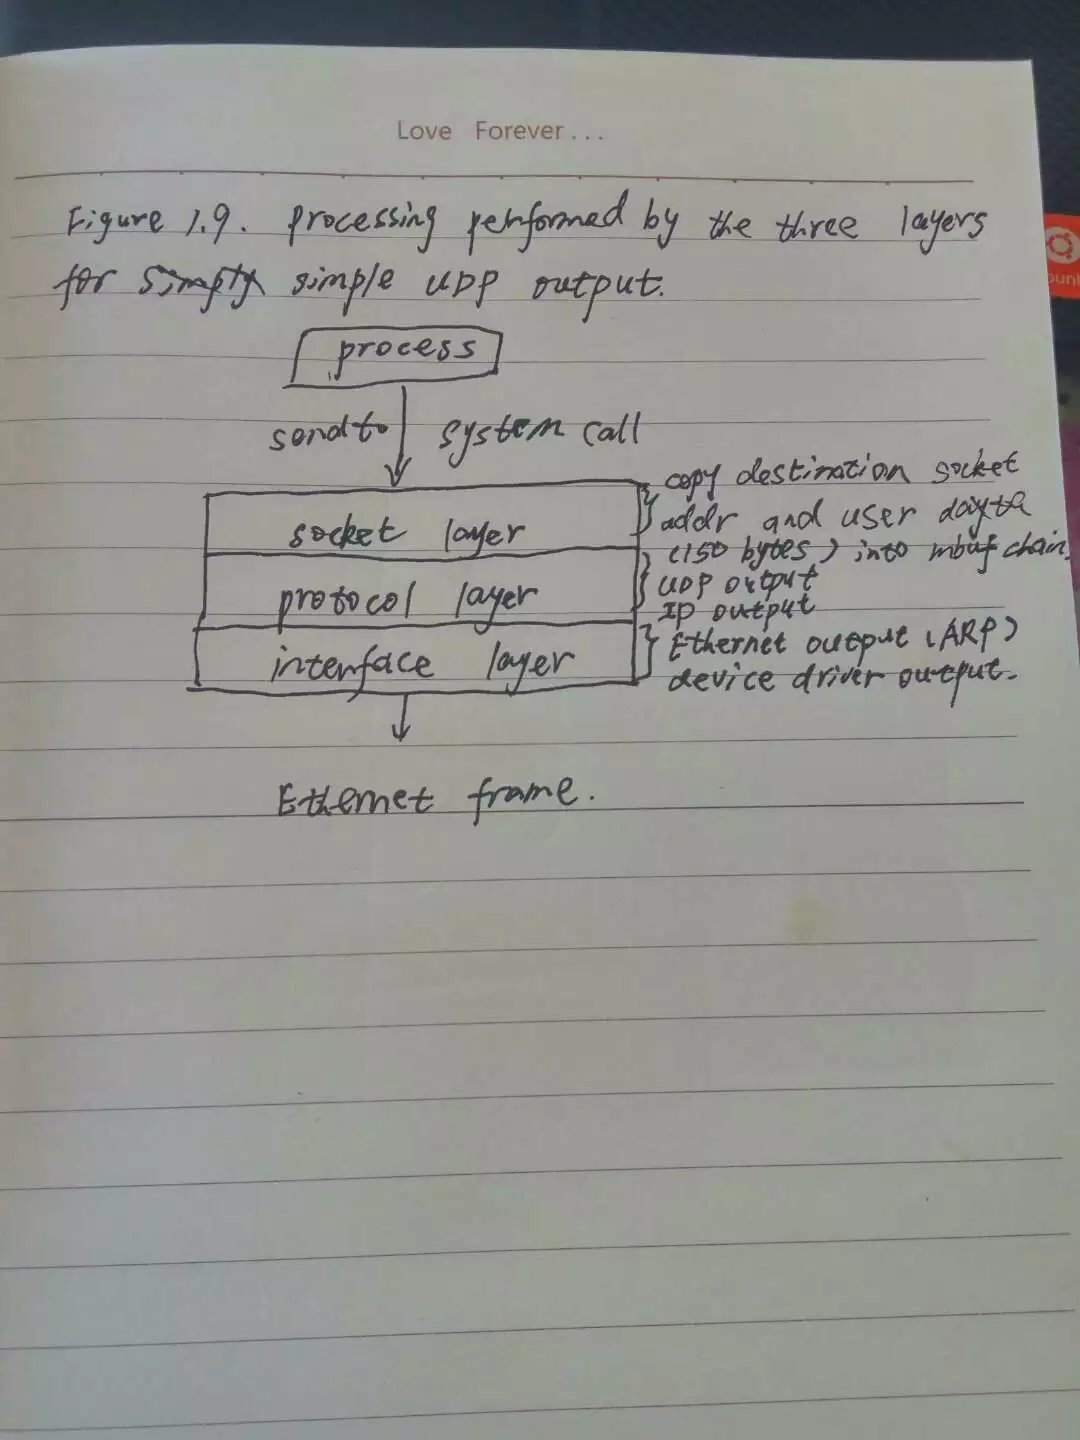 Love Forever...
Figure 1.9. processing performed by the three layers
for simply simple UDP output.
process
sendto system call
copy destination socket
socket layer addr and user dayta
(150 bytes) into mbuf chain.
protocol layer UDP output
IP output
interface layer Ethernet output (ARP)
device driver output.
Ethernet frame.